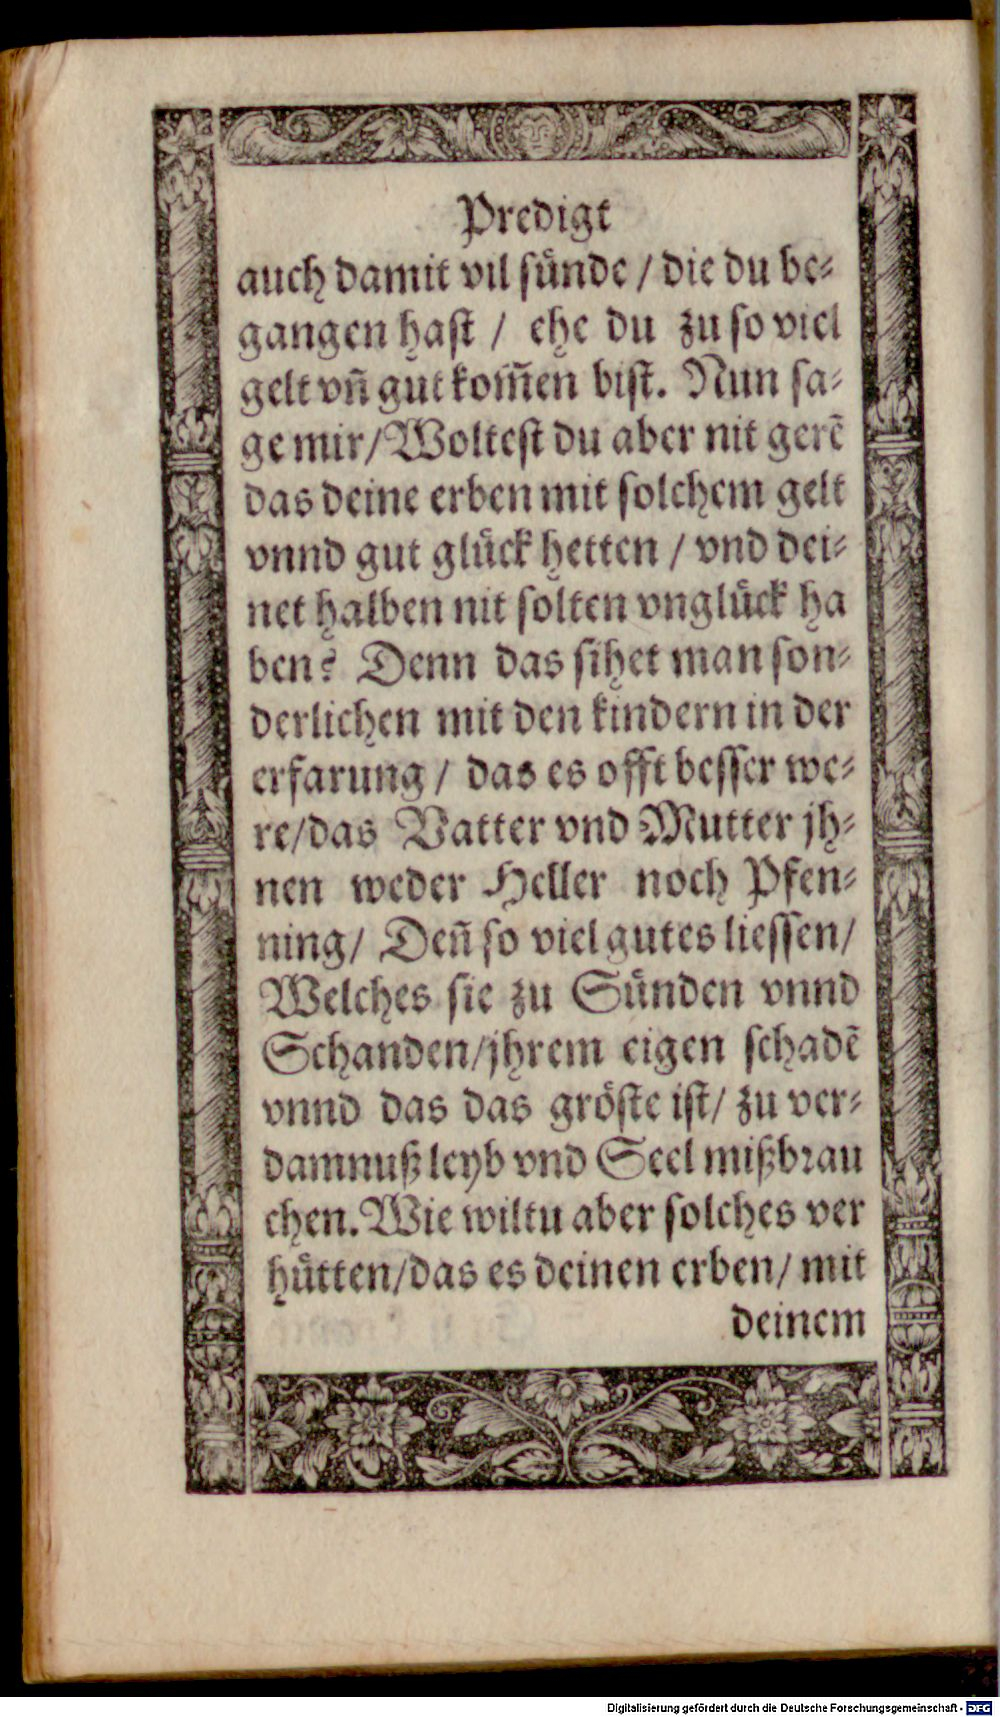 Predigt
auch damit vil sünde / die du be-
gangen hast / ehe du zu so viel
gelt vñ gut kom̃en bist. Nun sa-
ge mir/Woltest du aber nit gerẽ
das deine erben mit solchem gelt
vnnd gut glück hetten / vnd dei-
net halben nit solten vnglück ha
ben? Denn das sihet man son-
derlichen mit den kindern in der
erfarung / das es offt besser we-
re/das Vatter vnd Mutter jh-
nen weder Heller noch Pfen-
ning/ Deñ so viel gutes liessen/
Welches sie zu Sünden vnnd
Schanden/jhrem eigen schadẽ
vnnd das das gröste ist/ zu ver-
damnuß leyb vnd Seel mißbrau
chen. Wie wiltu aber solches ver
hütten/das es deinen erben/ mit
deinem
Digitalisierung gefördert durch die Deutsche Forschungsgemeinschaft - DFG